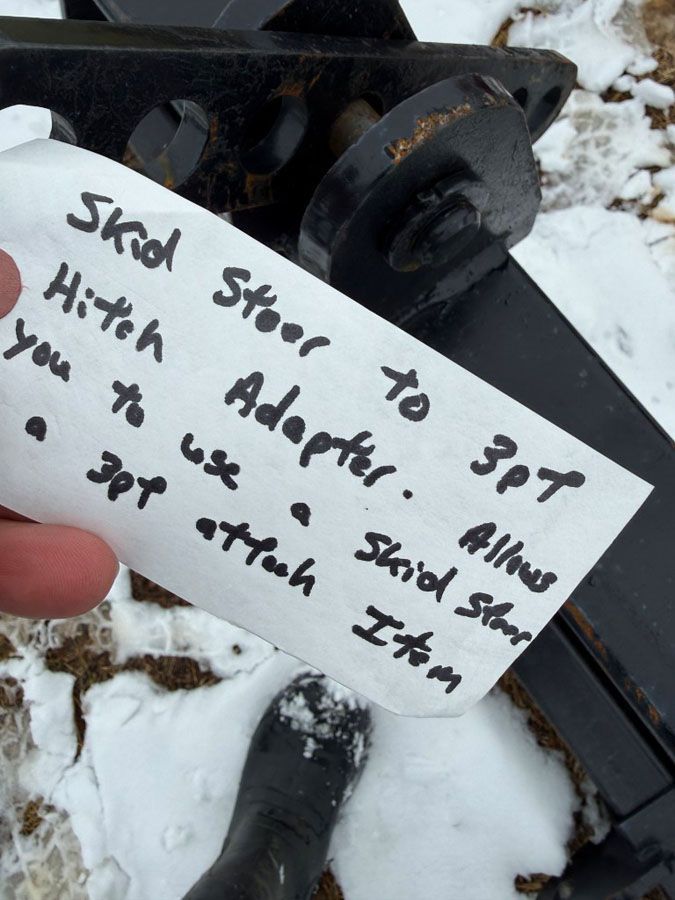 Skid Steer to 3pt
Hitch Adapter. Allows
you to use a Skid Steer
a 3pt attach Item